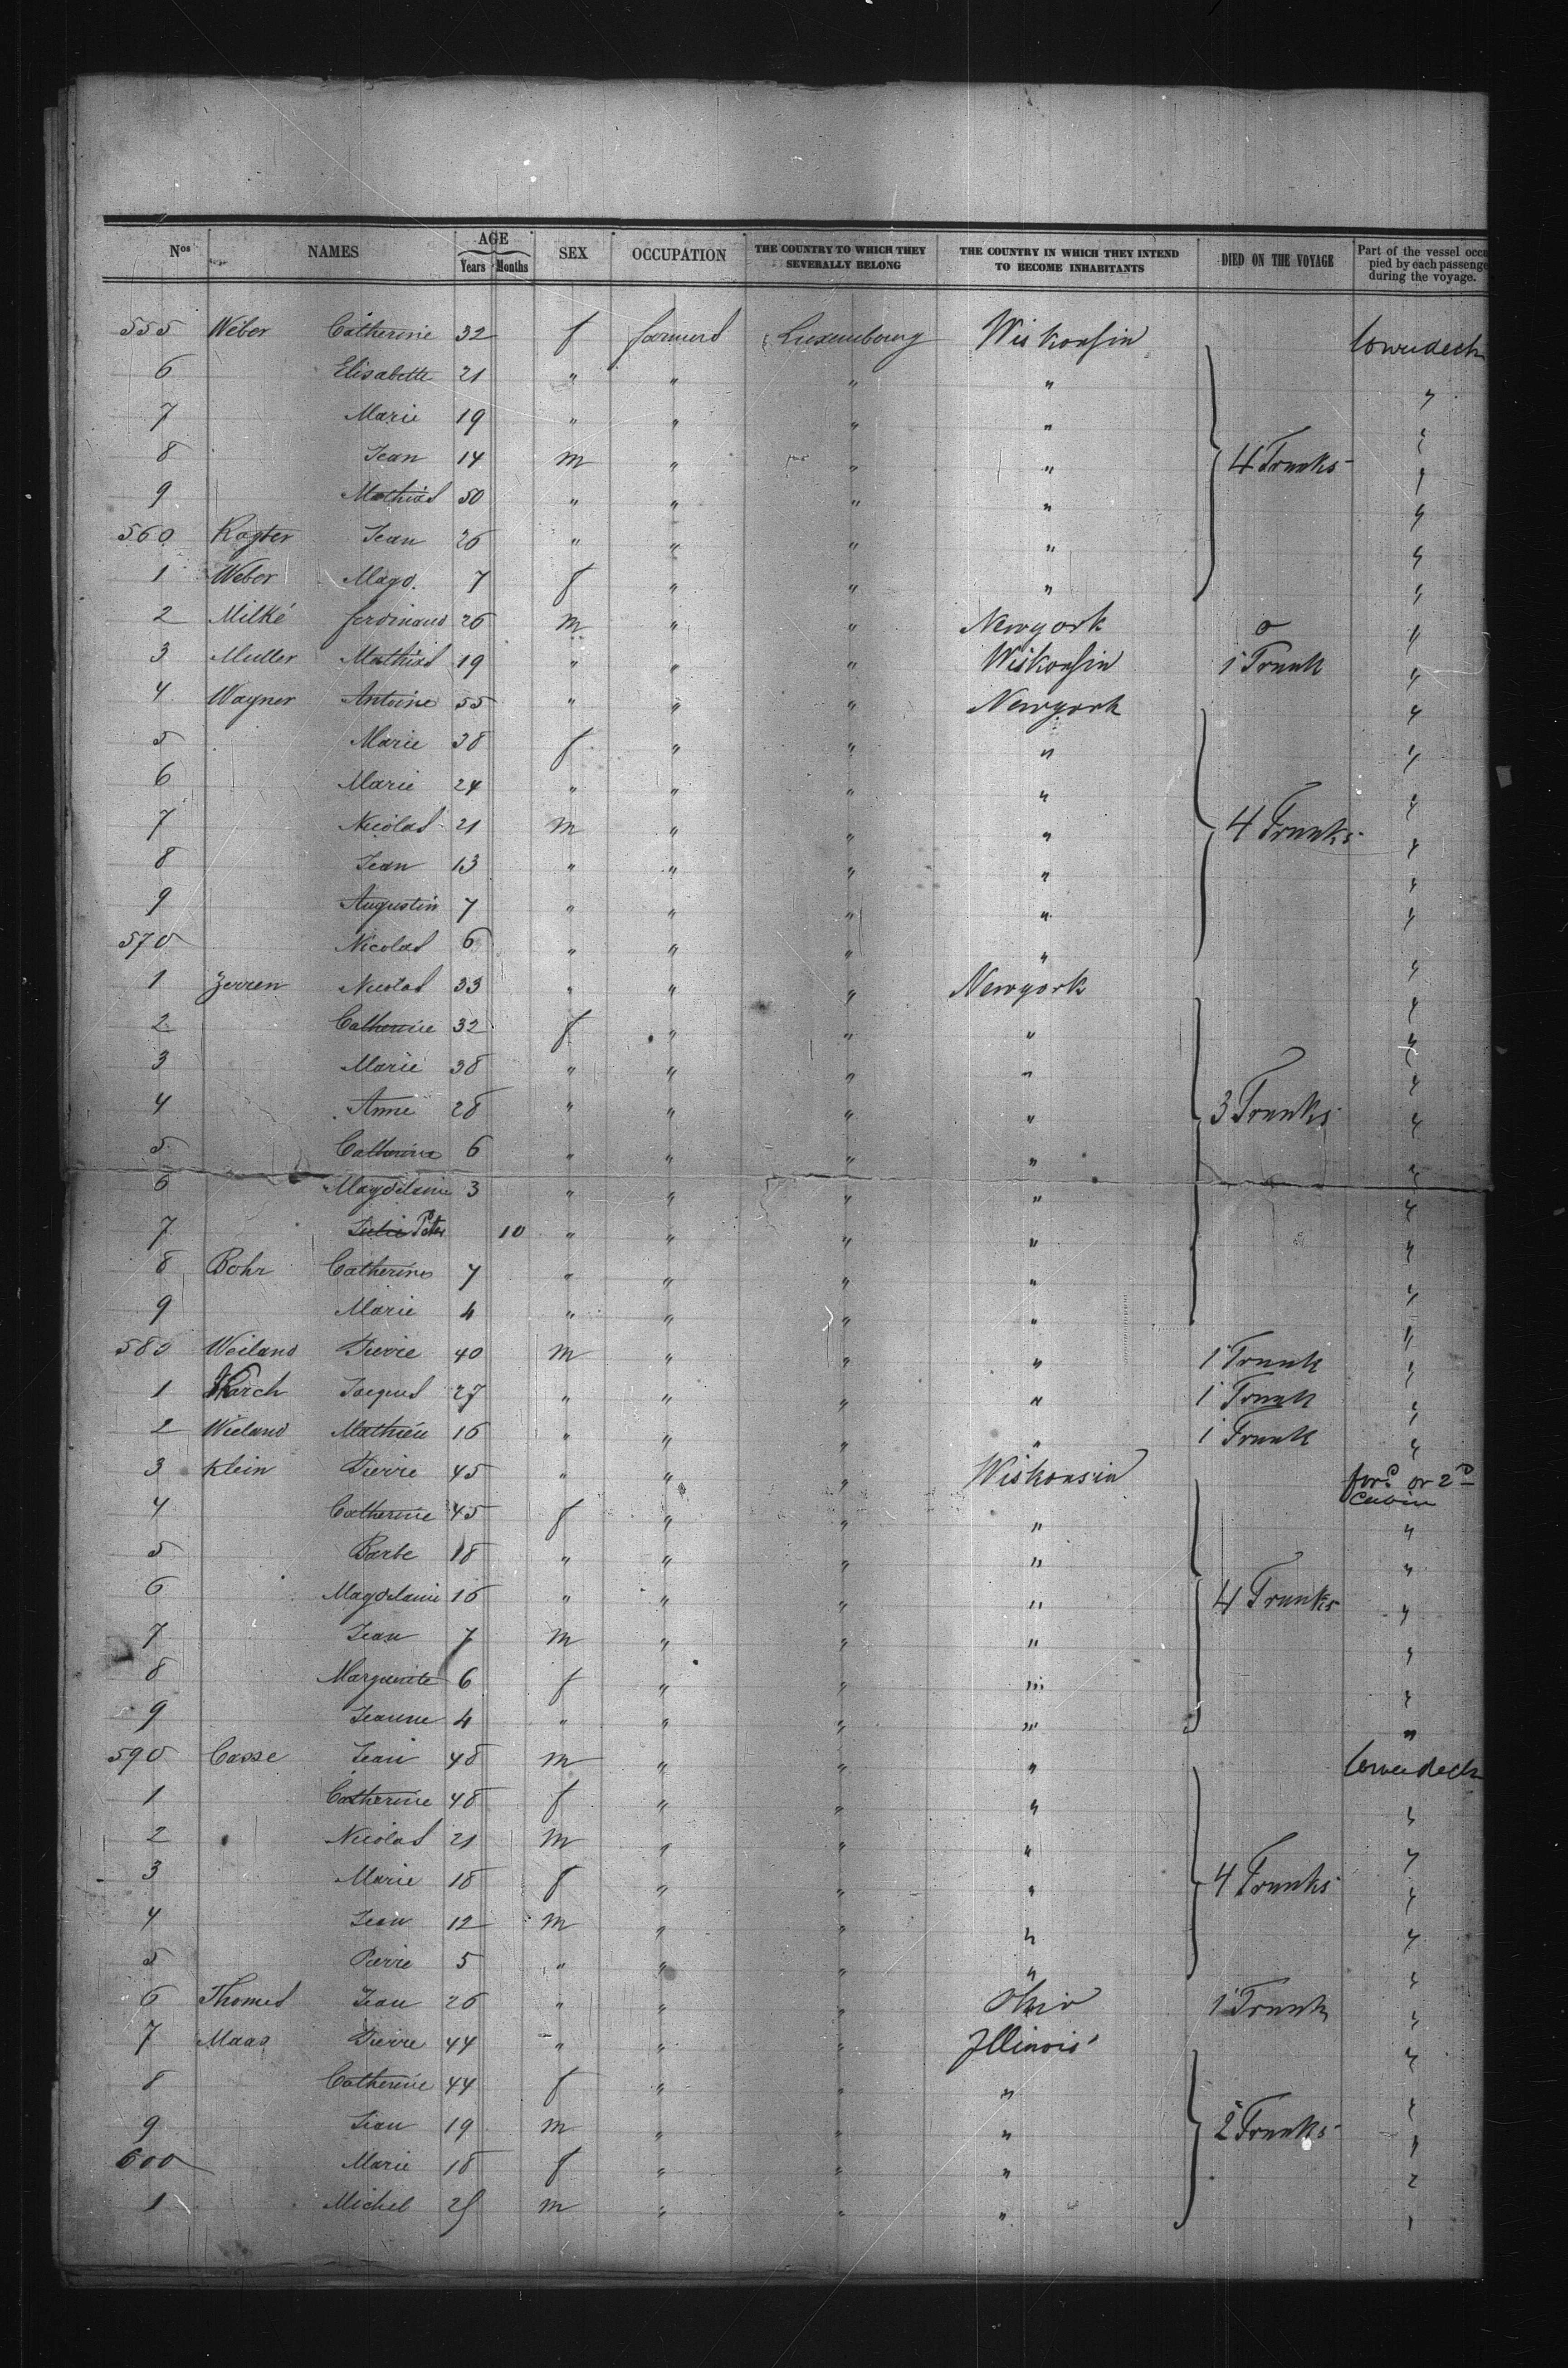 Nos NAMES AGE Years Months SEX OCCUPATION THE COUNTRY TO WHICH THEY SEVERALLY BELONG THE COUNTRY IN WHICH THEY INTEND TO BECOME INHABITANTS DIED ON THE VOYAGE Part of the vessel occu pied by each passenge during the voyage.
555 Weber Catherine 32 f farmers Luxembourg Wiskonsin lowerdeck
6 Elisabette 21 " " " " "
7 Marie 19 " " " " "
8 Jean 14 m " " " 4 Trunks "
9 Mathias 50 " " " " "
560 Kayter Jean 26 " " " " "
1 Weber Magd. 7 f " " " "
2 Milké ferdinand 26 m " " Newyork o "
3 Muller Mathias 19 " " " Wiskonsin 1 Trunk "
4 Wagner Antoine 55 " " " Newyork "
5 Marie 38 f " " " "
6 Marie 24 " " " " "
7 Nicolas 21 m " " " 4 Trunks "
8 Jean 13 " " " " "
9 Augustin 7 " " " " "
570 Nicolas 6 " " " " "
1 Zerren Nicolas 33 " " " Newyork "
2 Catherine 32 f " " " "
3 Marie 38 " " " " "
4 Anne 28 " " " " 3 Trunks "
5 Catherine 6 " " " " "
6 Magdelaine 3 " " " " "
7 Julie Peter 10 " " " " "
8 Bohr Catherine 7 " " " " "
9 Marie 4 " " " " "
580 Weiland Pierre 40 m " " " 1 Trunk "
1 Karch Jacques 27 " " " " 1 Trunk "
2 Wieland Mathieu 16 " " " " 1 Trunk "
3 Klein Pierre 45 " " " Wiskonsin ford or 2d Cabin
4 Catherine 45 f " " " "
5 Barbe 18 " " " " "
6 Magdelaine 16 " " " " 4 Trunks "
7 Jean 7 m " " " "
8 Marguerite 6 f " " " "
9 Jeanne 4 " " " " "
590 Casse Jean 48 m " " " lowerdeck
1 Catherine 48 f " " " "
2 Nicolas 21 m " " " "
3 Marie 18 f " " " 4 Trunks "
4 Jean 12 m " " " "
5 Pierre 5 " " " " "
6 Thomas Jean 26 " " " Ohio 1 Trunk "
7 Maas Pierre 44 " " " Illinois "
8 Catherine 44 f " " " "
9 Jean 19 m " " " 2 Trunks "
600 Marie 18 f " " " "
1 Michel m " " " "